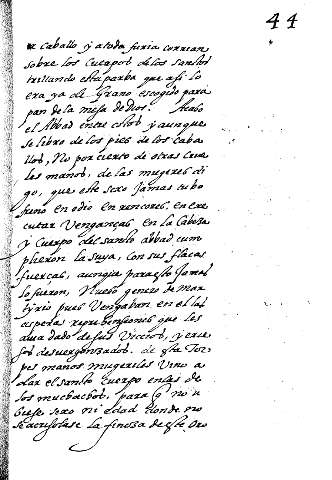 44
caballo y atoda furia corrian
sobre los Cuerpos de los Santos
trillando esta parba que asi lo
era ya de Grano escogido para
pan de la mesa de Dios. Acabo
el Abbad entre ellos y aunque
se libro de los pies de los caba
llos, No por cierto de otras crue
les manos, de las mugeres di
go, que este sexo Jamas tubo
freno en odio en rencores. en exe
cutar Venganças en la Cabeza
y Cuerpo del santo abbad cum
plieron la suya, con sus flacas
fuerças, aunque para esto Jamas
lo fueron, Nuevo genero de Mar
tyrio pues Vengaban en el las
asperas reprehensiones que les
avia dado de sus Viccios, y exce
sos desvergonzados. de esta Tor
pes manos mugeriles Vino a
dar el santo cuerpo en las de
los muchachos. para q no u
biese sexo ni edad donde no
se acrisolase la fineza de este Oro